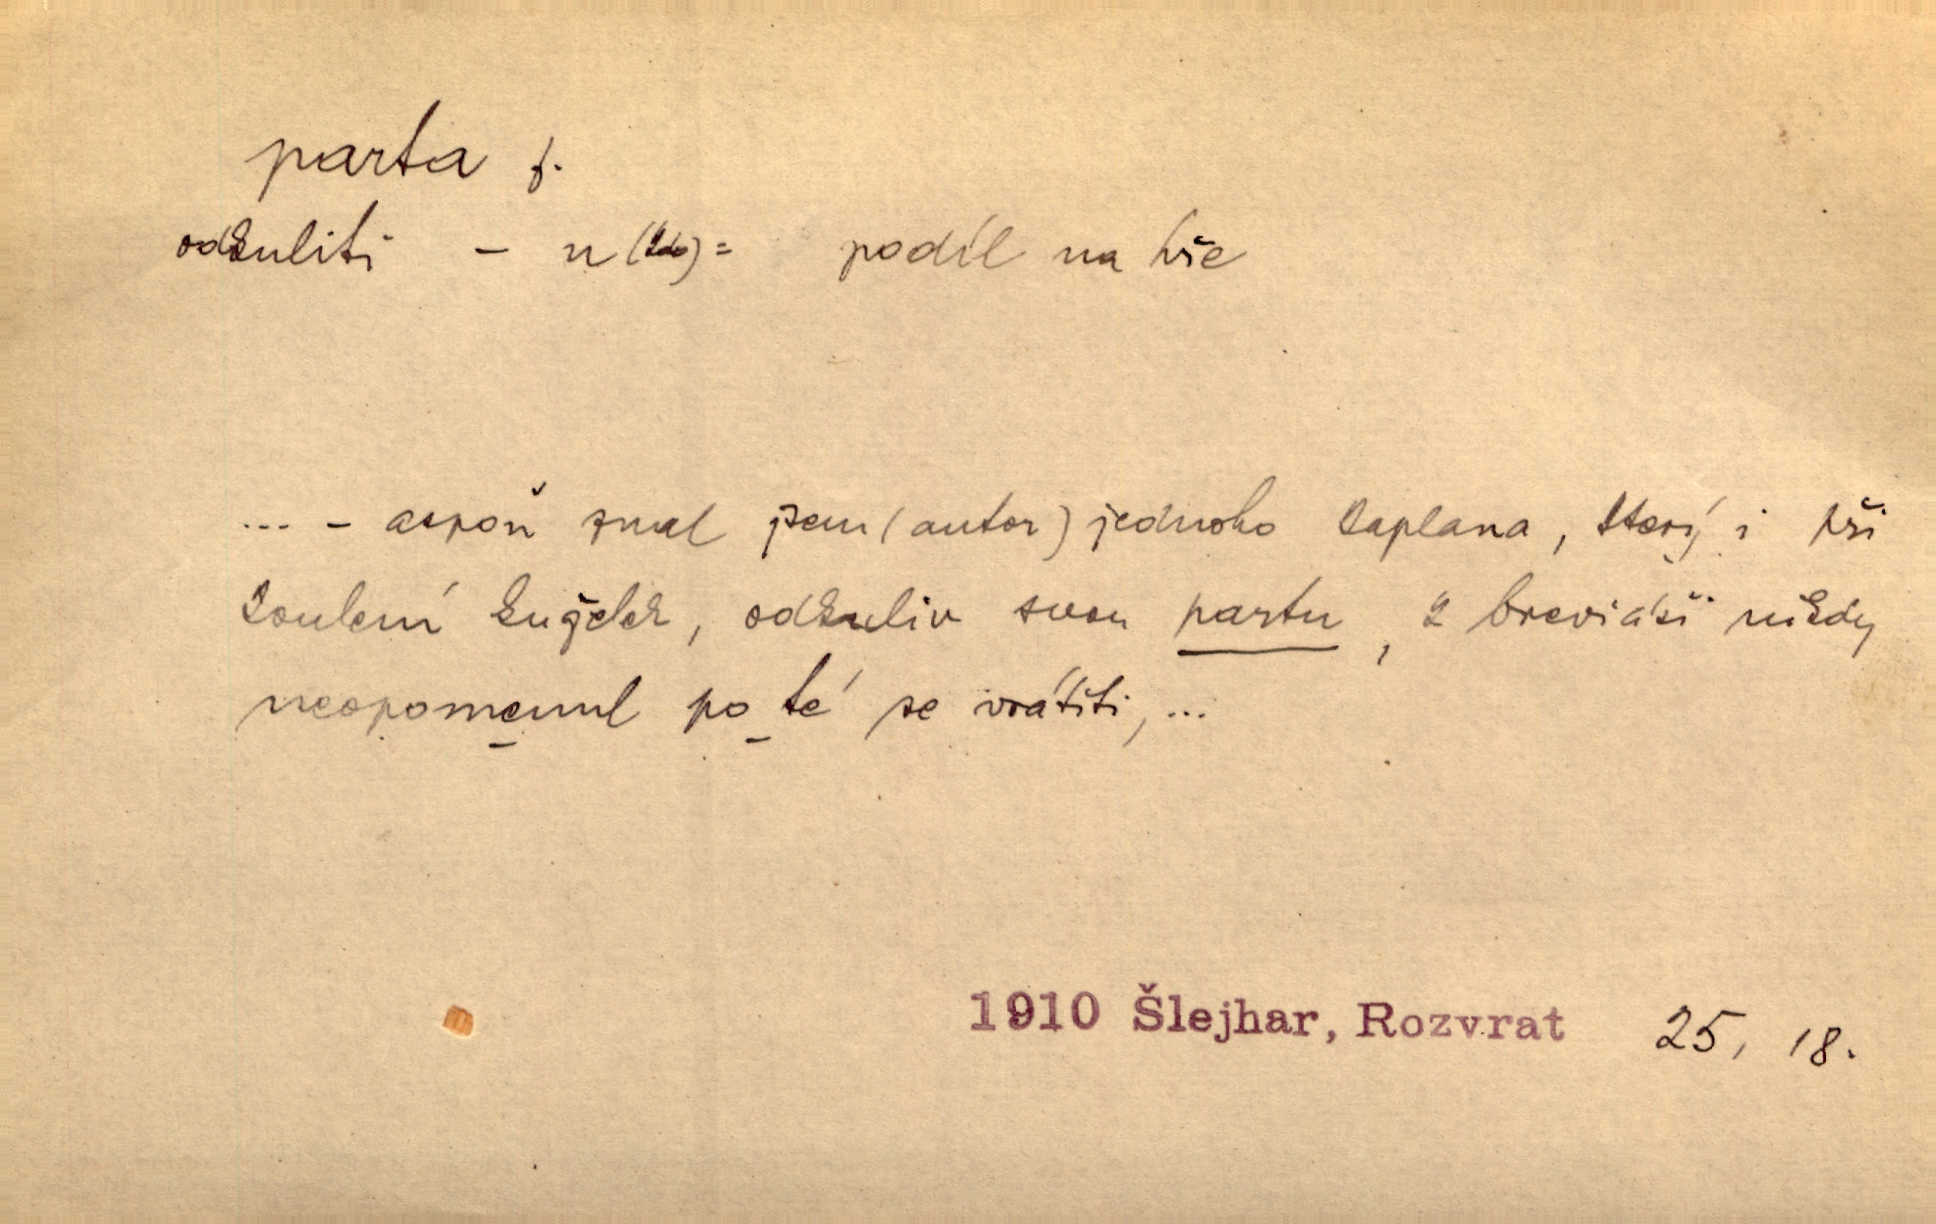 parta f.
odkuliti – u (kdo) = podíl na hře
... – aspoň znal jsem (autor) jednoho kaplana, který i při
koulení kuželek, odkuliv svou partu, k breviáři nikdy
neopomenul po té se vrátiti, ...
1910 Šlejhar, Rozvrat 25, 18.